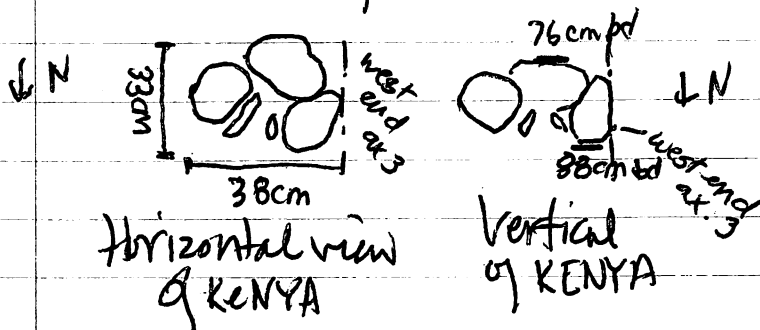 N
33cm
west
end
ax.3
38cm
Horizontal view
of KeNYA
76cm bd
N
88cm bd
west end
ax.3
Vertical
of KENYA